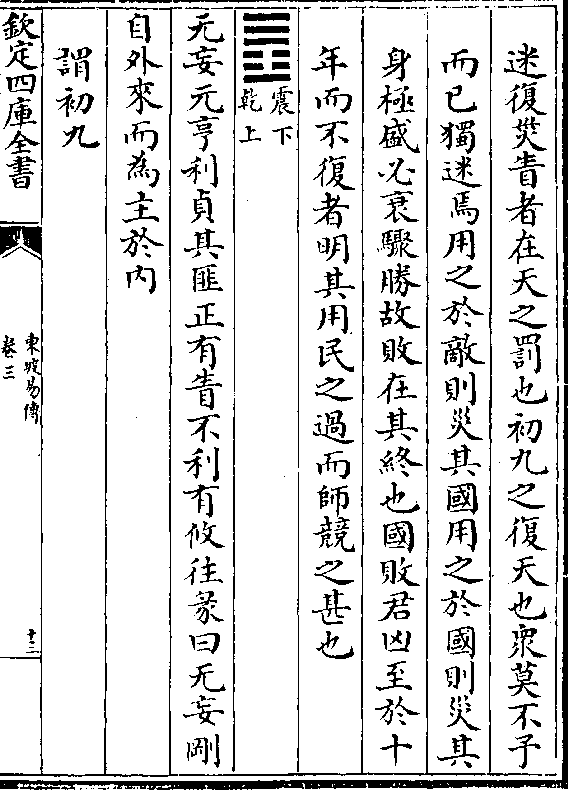 迷復災眚者在天之罰也初九之復天也衆莫不予
而已獨迷焉用之於敵則災其國用之於國則災其
身極盛必衰驟勝故敗在其終也國敗君凶至於十
年而不復者明其用民之過而師競之甚也
震下
乾上
无妄元亨利貞其匪正有眚不利有攸往彖曰无妄剛
自外來而為主於内
謂初九
欽定四庫全書
東坡易傳
卷三
十三